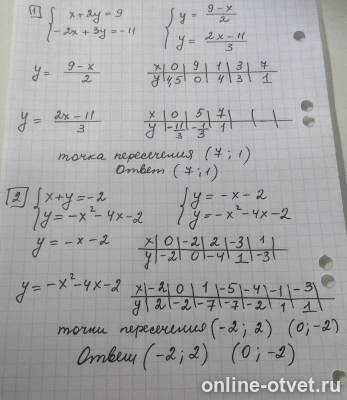 1 { x+2y=9 { y = (9-x)/2
-2x+3y=-11 y = (2x-11)/3
y = (9-x)/2 x | 0 | 9 | 1 | 3 | 7
y | 4,5 | 0 | 4 | 3 | 1
y = (2x-11)/3 x | 0 | 5 | 7 | |
y | -11/3 | -1/3 | 1 | |
точка пересечения (7;1)
Ответ (7;1)
2 { x+y=-2 { y=-x-2
y=-x²-4x-2 y=-x²-4x-2
y=-x-2 x | 0 | -2 | 2 | -3 | 1
y | -2 | 0 | -4 | 1 | -3
y=-x²-4x-2 x | -2 | 0 | 1 | -5 | -4 | -1 | -3
y | 2 | -2 | -7 | -7 | -2 | 1 | 1
точки пересечения (-2;2) (0;-2)
Ответ (-2;2) (0;-2)
online-otvet.ru